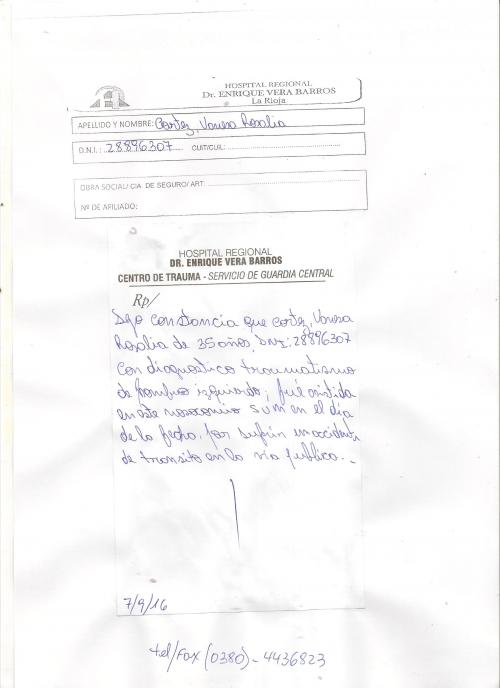 HOSPITAL REGIONAL
Dr. ENRIQUE VERA BARROS
La Rioja
APELLIDO Y NOMBRE: Cortez, Vanesa Rosalia
D.N.I.: 28896307 CUIT/CUIL:
OBRA SOCIAL/CIA DE SEGURO/ ART:
Nº DE AFILIADO:
HOSPITAL REGIONAL
DR. ENRIQUE VERA BARROS
CENTRO DE TRAUMA - SERVICIO DE GUARDIA CENTRAL
Rp/
Dejo constancia que Cortez, Vanesa
Rosalia de 35 años, DNI: 28896307
con diagnostico traumatismo
de hombro izquierdo, fué asistida
en este nosocomio en el día
de la fecha, por sufrir un accidente
de transito en la via publica.-
7/9/16
tel/fax (0380)-4436823